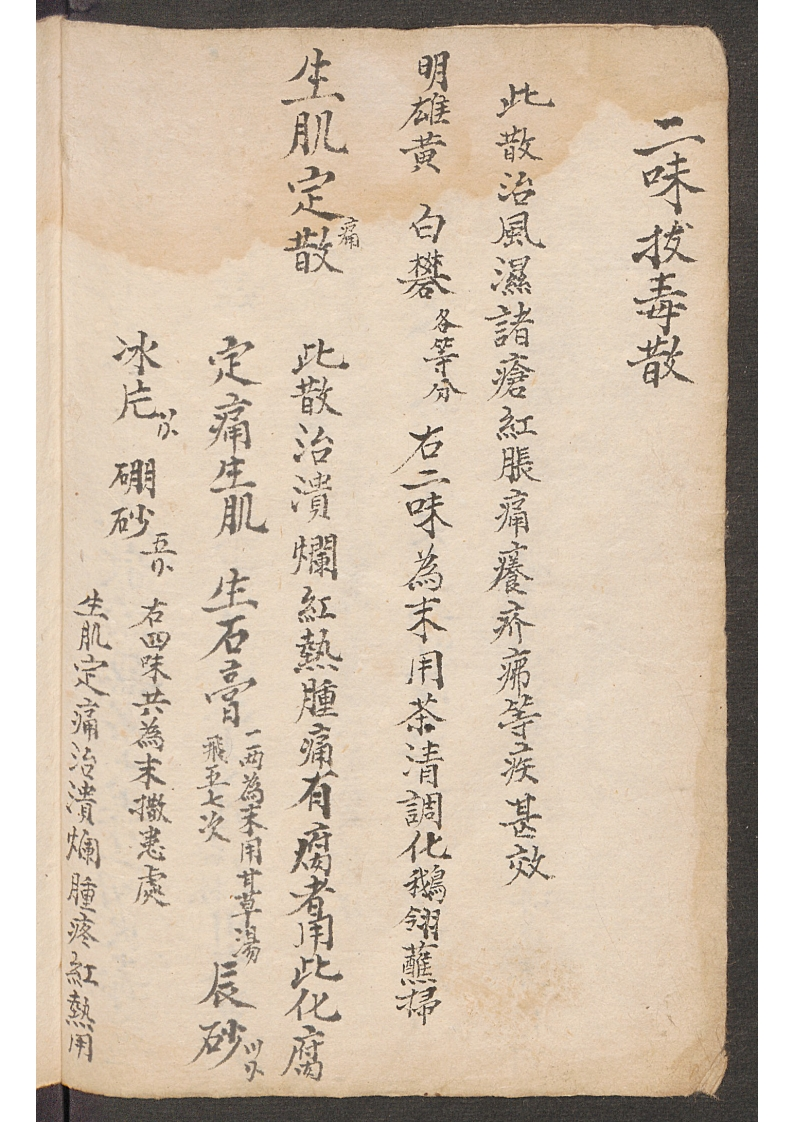 二味拔毒散
此散治風濕諸瘡紅脹痛癢疥痱等疾甚效
明雄黃 白礬各等分 右二味為末用茶清調化鵝翎蘸掃
生肌定痛散
此散治潰爛紅熱腫痛有腐者用此化腐
定痛生肌 生石膏一両為末用甘草湯飛五七次 辰砂〣分
冰片 硼砂五分 右四味共為末撒患處
生肌定痛治潰爛腫疼紅熱用